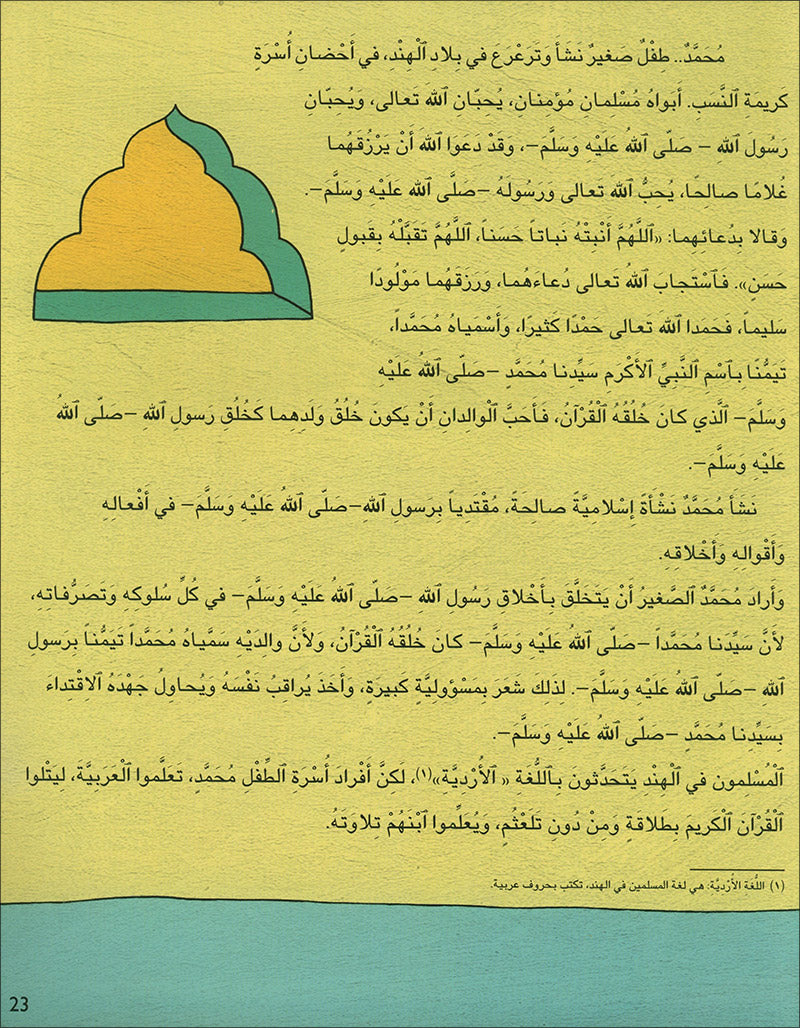 مُحَمَّدٌ.. طِفْلٌ صَغيرٌ نَشَأَ وَتَرَعْرَعَ في بِلادِ ٱلْهِنْدِ، في أَحْضانِ أُسْرَةٍ
كريمَةِ ٱلنَّسَبِ. أَبَواهُ مُسْلِمانِ مُؤْمِنانِ، يُحِبّانِ ٱللهَ تعالى، وَيُحِبّانِ
رَسُولَ ٱللهِ – صَلّى ٱللهُ عَلَيْهِ وَسَلَّمَ–، وَقَدْ دَعَوَا ٱللهَ أَنْ يَرْزُقَهُما
غُلامًا صالِحًا، يُحِبُّ ٱللهَ تَعالى وَرسُولَهُ –صَلَّى ٱللهُ عَلَيْهِ وَسَلَّمَ–.
وَقالا بِدُعائِهِما: «ٱللَّهُمَّ أَنْبِتْهُ نَباتاً حَسَناً، ٱللَّهُمَّ تَقَبَّلْهُ بِقَبولٍ
حَسَنٍ». فَٱسْتَجابَ ٱللهُ تعالى دُعاءَهُما، وَرَزقَهُما مَوْلُودًا
سَليماً، فَحَمَدا ٱللهَ تعالى حَمْدًا كَثيرًا، وَأَسْمَياهُ مُحَمَّداً،
تَيَمُّنًا بِٱسْمِ ٱلنَّبِيِّ ٱلأَكْرم سَيِّدِنا مُحَمَّدٍ –صَلّى ٱللهُ عَلَيْهِ
وسَلَّمَ– ٱلَّذي كانَ خُلُقُهُ ٱلْقُرْآنُ، فَأَحَبَّ ٱلْوالِدانِ أَنْ يكونَ خُلُقُ وَلَدِهِما كَخُلُقِ رَسولِ ٱللهِ –صَلّى ٱللهُ
عَليْهِ وَسَلَّمَ–.
نشأ مُحَمَّدٌ نَشْأَةً إِسْلامِيَّةً صالِحَةً، مُقْتَدِياً بِرَسولِ ٱللهِ–صَلّى ٱللهُ عَلَيْهِ وَسَلَّمَ– في أَفْعالِهِ
وَأَقْوالِهِ وَأَخْلاقِهِ.
وَأَرادَ مُحَمَّدٌ ٱلصَّغيرُ أَنْ يَتَخَلَّقَ بِأَخْلاقِ رَسُولِ ٱللهِ –صَلّى ٱللهُ عَلَيْهِ وَسَلَّمَ– في كُلِّ سُلوكِهِ وَتَصَرُّفاتِهِ،
لأَنَّ سَيِّدَنا مُحَمَّداً –صَلّى ٱللهُ عليْهِ وَسَلَّمَ– كان خُلُقُهُ ٱلْقُرْآنُ، وَلأَنَّ والِدَيْه سَمَّياهُ مُحَمَّداً تيمُّناً بِرسولِ
ٱللهِ –صَلّى ٱللهُ عليْهِ وَسَلَّمَ–. لِذَلِكَ شَعَرَ بِمَسْؤوليَّةٍ كبيرَةٍ، وَأَخَذَ يُراقِبُ نَفْسَهُ وَيُحاوِلُ جَهْدَهُ ٱلاِقْتِداءَ
بِسَيِّدِنا مُحَمَّدٍ –صَلّى ٱللهُ عَلَيْهِ وَسَلَّمَ–.
ٱلْمُسْلِمون في ٱلْهِنْدِ يَتَحَدَّثونَ بِٱللُّغَةِ « ٱلأُرْدِيَّةِ»(١)، لَكنَّ أَفْرادَ أُسْرَةِ ٱلطِّفْلِ مُحَمَّدٍ، تَعَلَّموا ٱلْعَرَبِيَّةَ، لِيَتْلوا
ٱلْقُرْآنَ ٱلْكَريمَ بِطَلاقَةٍ وَمِنْ دُونِ تَلَعْثُمٍ، وَيُعَلِّموا ٱبْنَهُمْ تِلاوَتَهُ.
(١) اللُّغة الأُرْديَّة: هي لغة المسلمين في الهند، تكتب بحروف عربية.
23